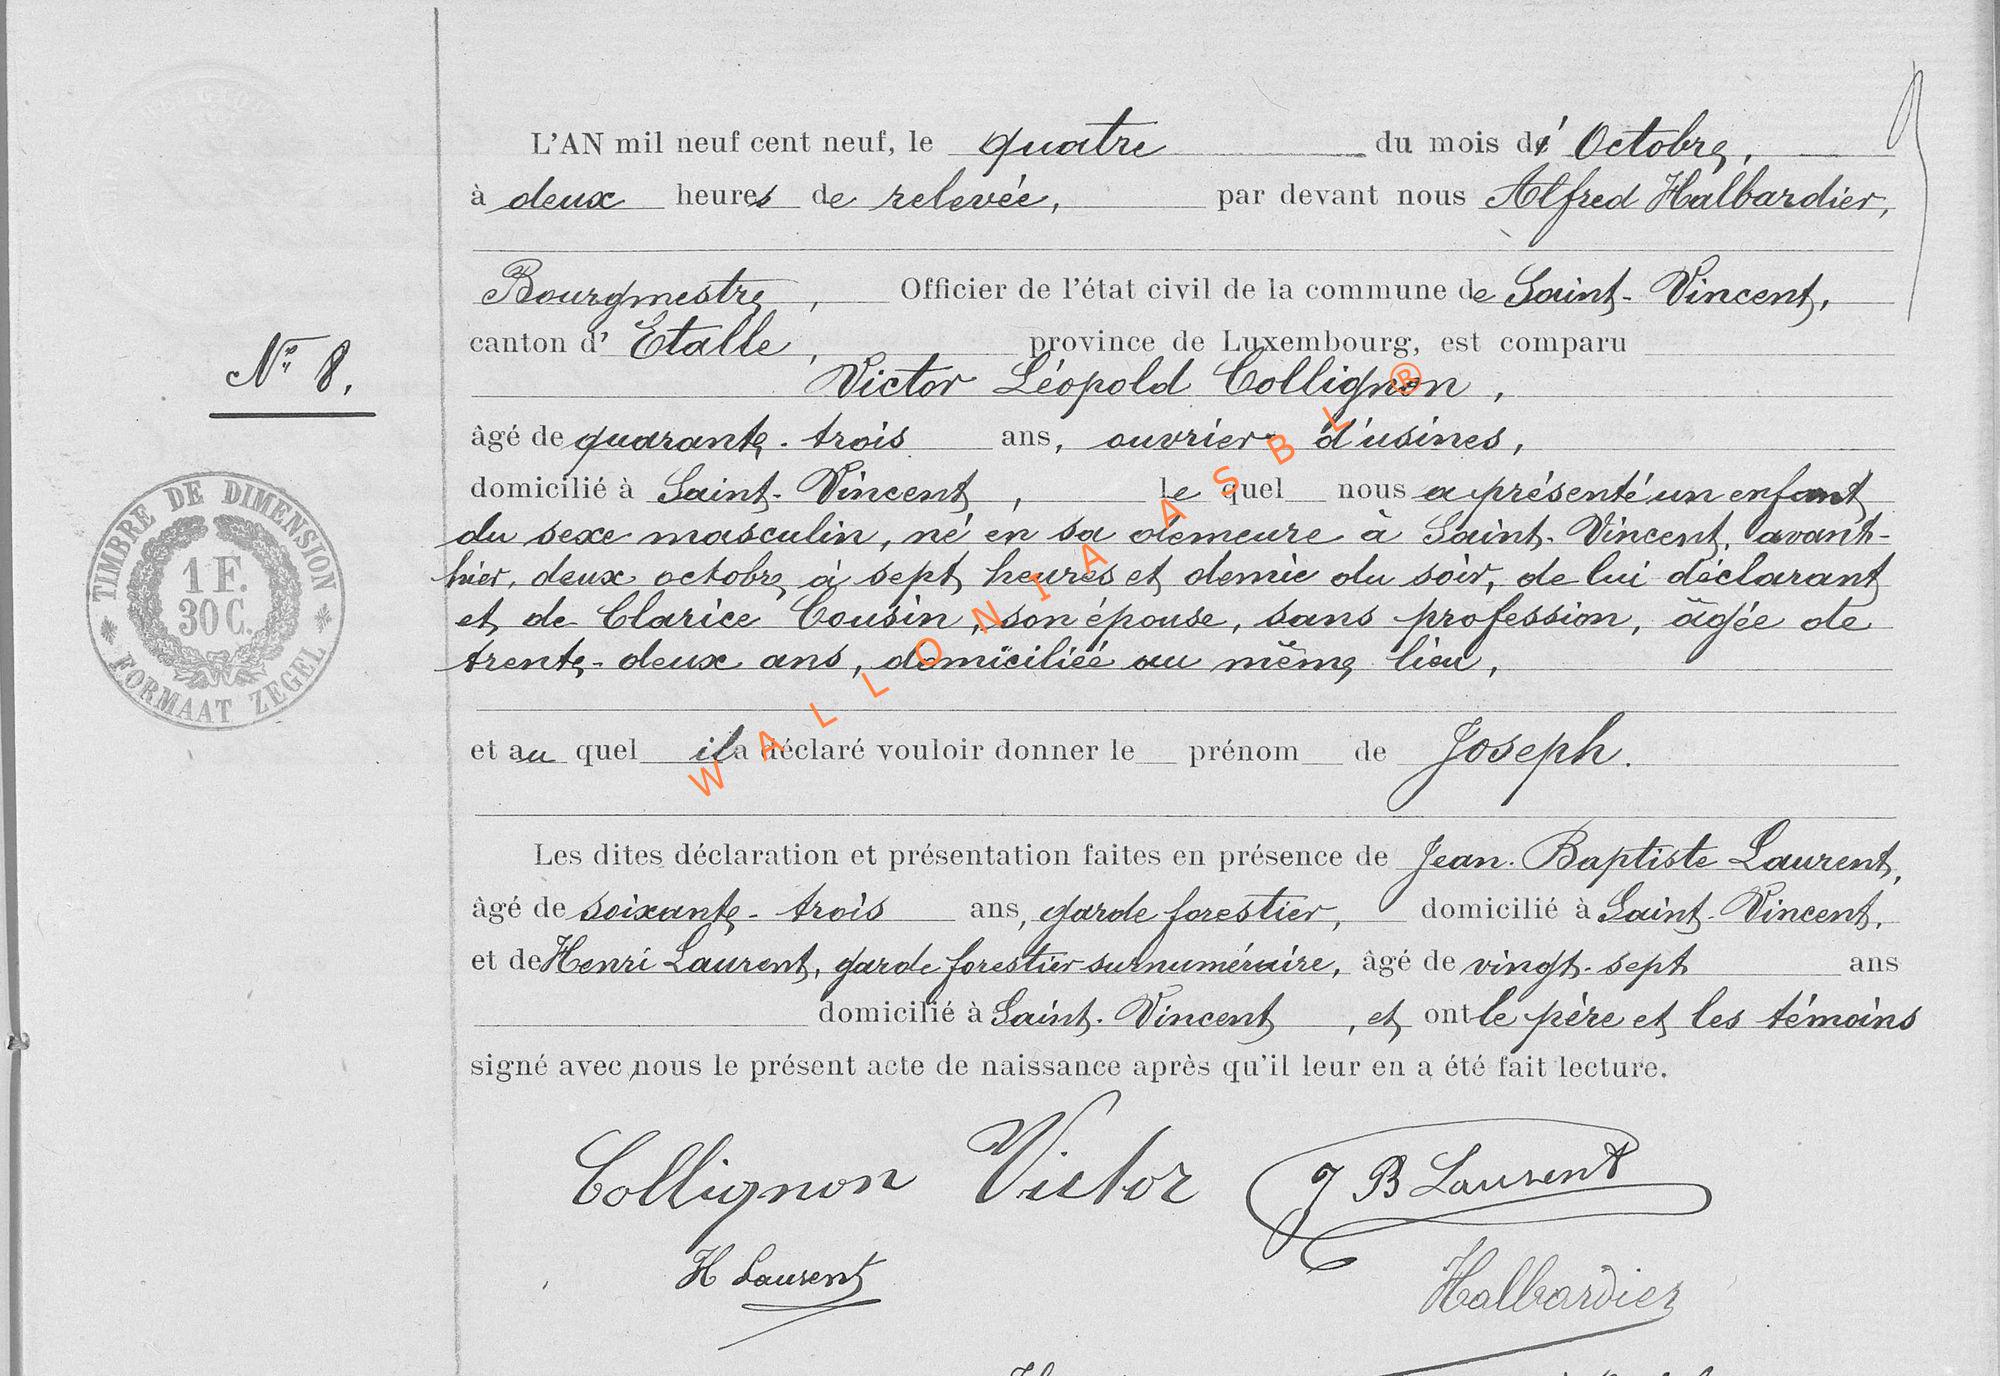 L'AN mil neuf cent neuf, le quatre du mois d' Octobre,
à deux heures de relevée, par devant nous Alfred Halbardier,
Bourgmestre, Officier de l'état civil de la commune de Saint-Vincent,
canton d' Etalle, province de Luxembourg, est comparu
Nº 8.
Victor Léopold Collignon,
âgé de quarante-trois ans, ouvrier d'usines,
domicilié à Saint-Vincent, le quel nous a présenté un enfant
du sexe masculin, né en sa demeure à Saint-Vincent, avant-
hier, deux octobre, à sept heures et demie du soir, de lui déclarant
et de Clarice Cousin, son épouse, sans profession, âgée de
trente-deux ans, domiciliée au même lieu,
TIMBRE DE DIMENSION
1 F.
30 C.
FORMAAT ZEGEL
et au quel il a déclaré vouloir donner le prénom de Joseph.
Les dites déclaration et présentation faites en présence de Jean-Baptiste Laurent,
âgé de soixante-trois ans, garde forestier, domicilié à Saint-Vincent,
et de Henri Laurent, garde forestier surnuméraire, âgé de vingt-sept ans
domicilié à Saint-Vincent, et ont le père et les témoins
signé avec nous le présent acte de naissance après qu'il leur en a été fait lecture.
Collignon Victor J B Laurent
H Laurent Halbardier
WALLONIA ASBL ®